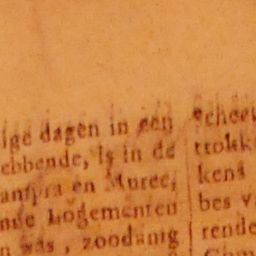 ige dagen in een
ebbende, is in de
en Muree,
nde Logementen
n was, zoodanig
scheel
trokk
kens
bes v
rende